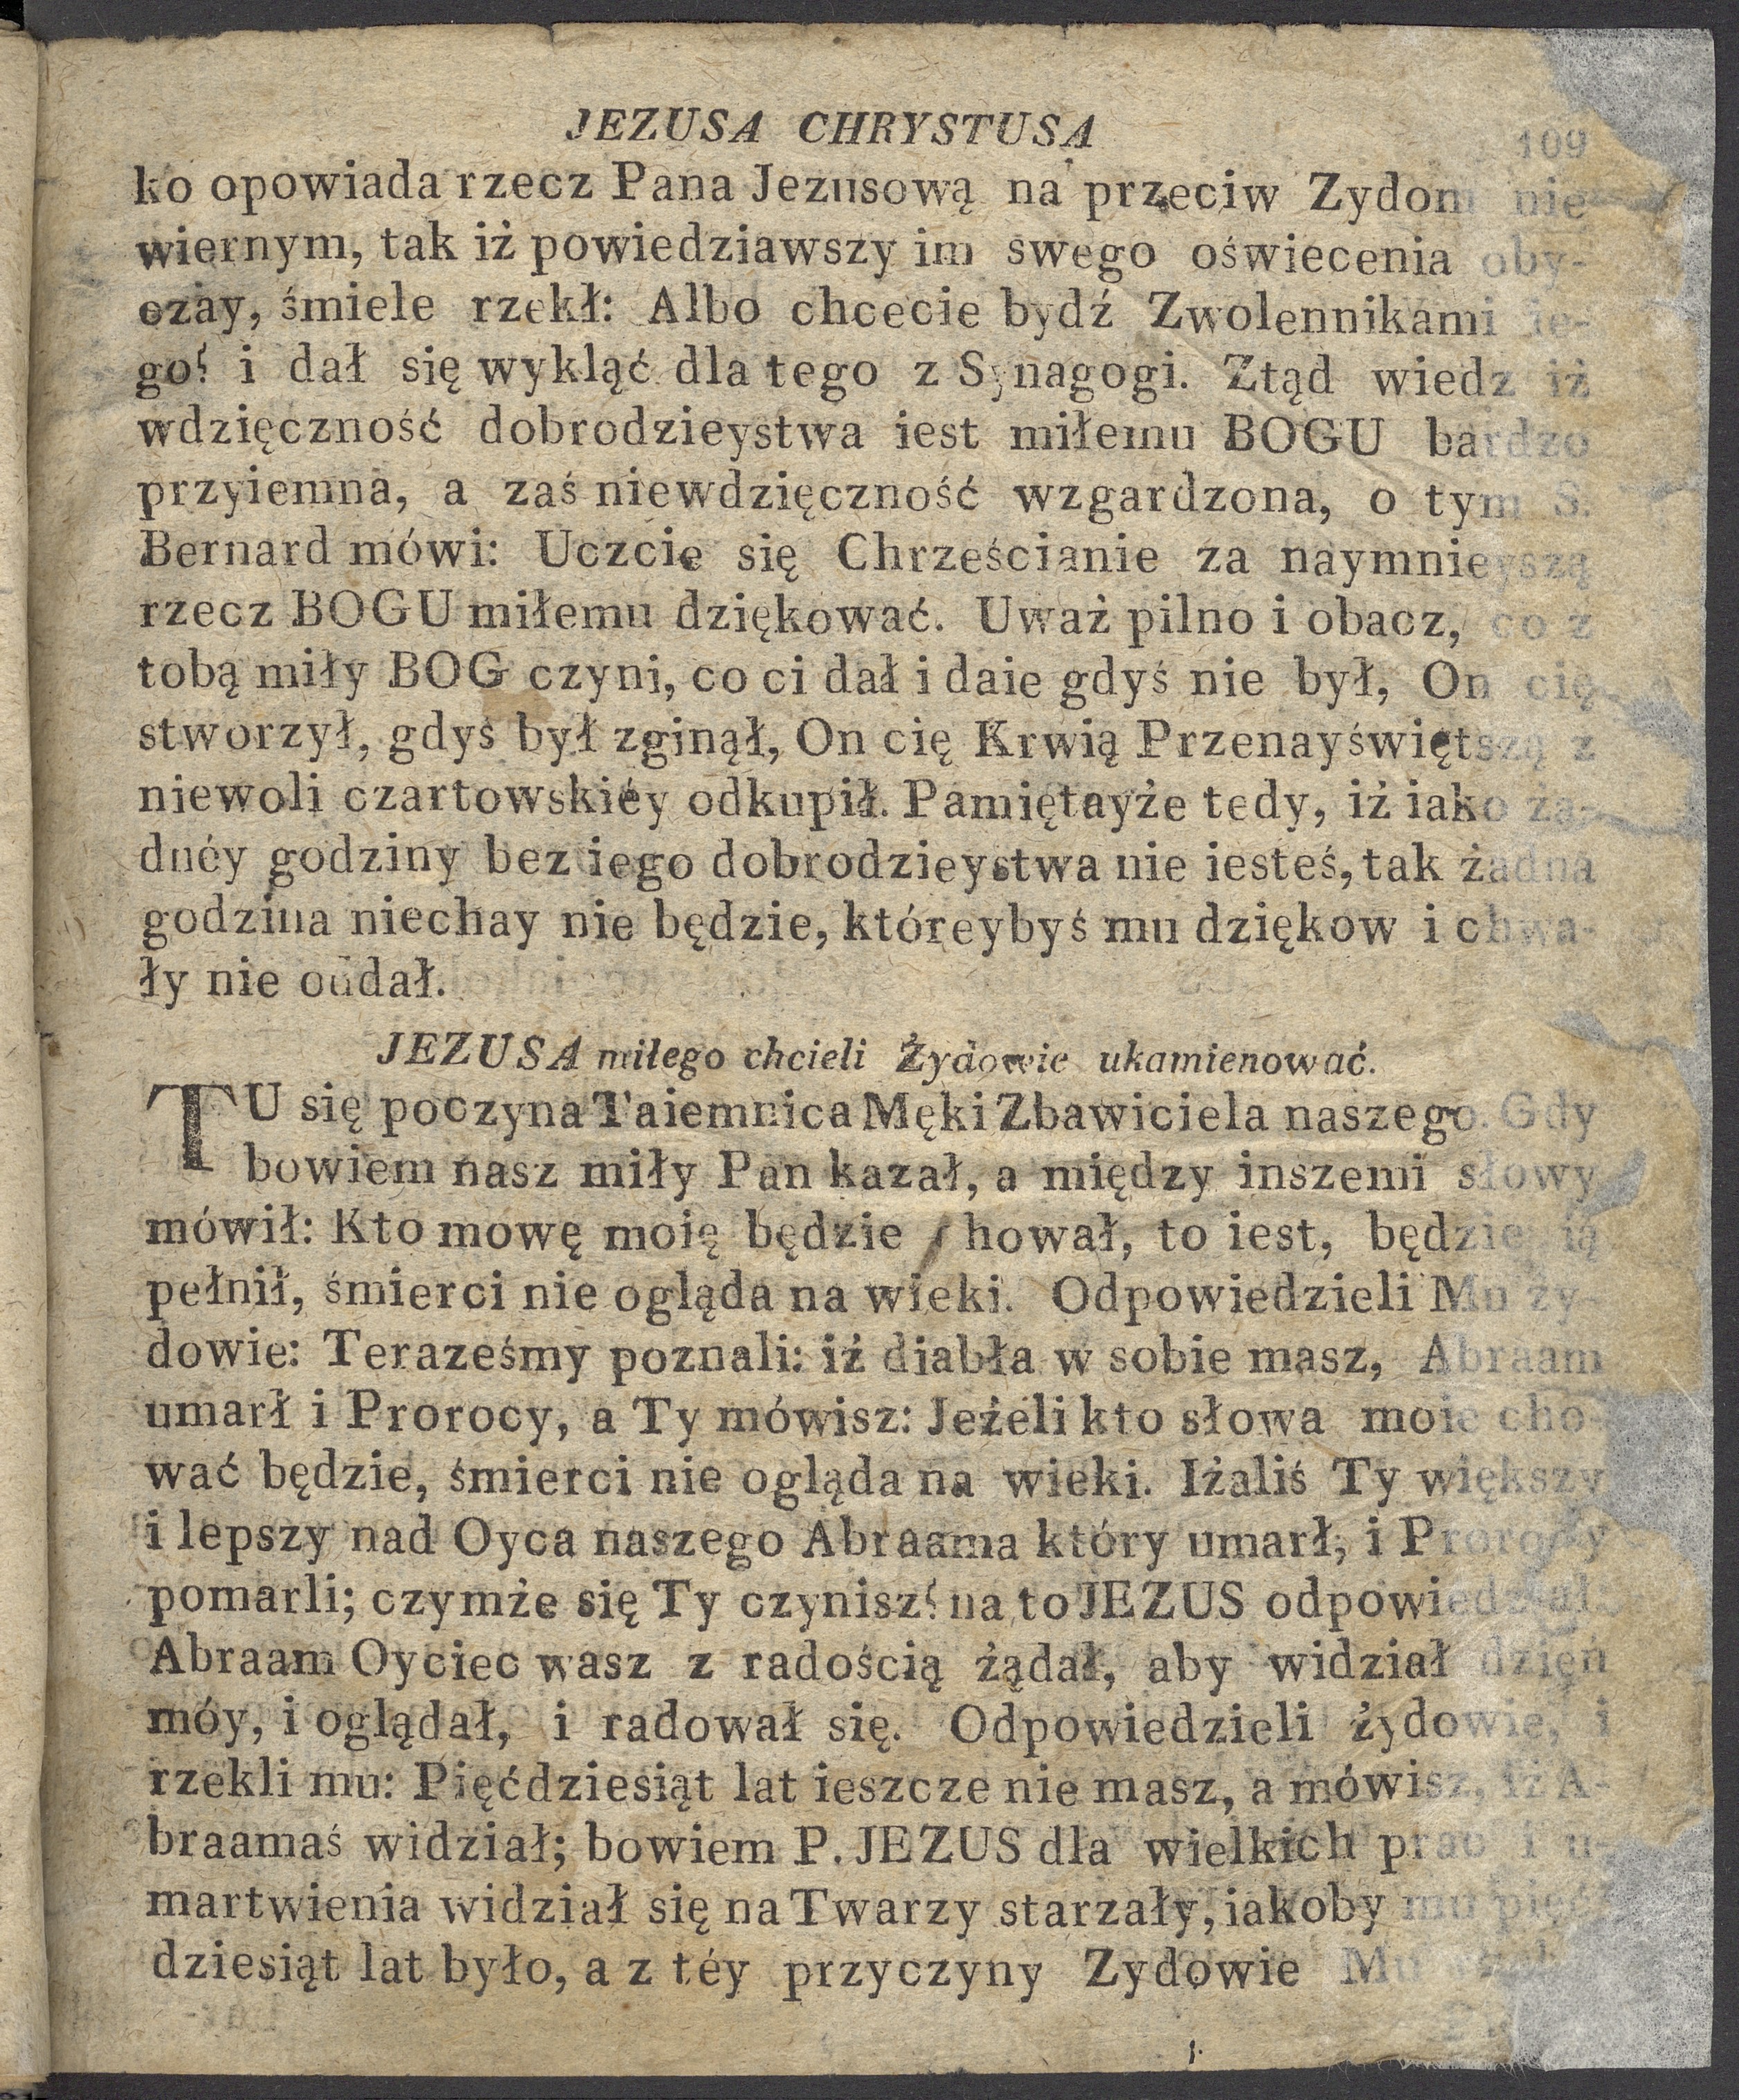 JEZUSA CHRYSTUSA 109
ko opowiada rzecz Pana Jezusową na przeciw Zydom nie
wiernym, tak iż powiedziawszy im swego oświecenia oby-
czay, śmiele rzekł: Albo chcecie bydź Zwolennikami ie-
go? i dał się wykląć dla tego z Synagogi. Ztąd wiedz iż
wdzięczność dobrodzieystwa iest miłemu BOGU bardzo
przyiemna, a zaś niewdzięczność wzgardzona, o tym S.
Bernard mówi: Uczcie się Chrześcianie za naymnieyszą
rzecz BOGU miłemu dziękować. Uważ pilno i obacz, co z
tobą miły BOG czyni, co ci dał i daie gdyś nie był, On cię
stworzył, gdyś był zginął, On cię Krwią Przenayświętszą z
niewoli czartowskiéy odkupił. Pamiętayże tedy, iż iako ża-
dnéy godziny bez iego dobrodzieystwa nie iesteś, tak żadna
godzina niechay nie będzie, któreybyś mu dziękow i chwa-
ły nie oddał.
JEZUSA miłego chcieli Żydowie ukamienować.
TU się poczyna Taiemnica Męki Zbawiciela naszego. Gdy
bowiem nasz miły Pan kazał, a między inszemi słowy
mówił: Kto mowę moię będzie hował, to iest, będzie ią
pełnił, śmierci nie ogląda na wieki. Odpowiedzieli Mu ży-
dowie: Teraześmy poznali: iż diabła w sobie masz, Abraam
umarł i Prorocy, a Ty mówisz: Jeżeli kto słowa moie cho-
wać będzie, śmierci nie ogląda na wieki. Iżaliś Ty większy
i lepszy nad Oyca naszego Abraama który umarł, i Prorocy
pomarli; czymże się Ty czynisz? na to JEZUS odpowiedział
Abraam Oyciec wasz z radością żądał, aby widział dzięń
móy, i oglądał, i radował się. Odpowiedzieli żydowie, i
rzekli mu: Pięćdziesiąt lat ieszcze nie masz, a mówisz, iż A-
braamaś widział; bowiem P. JEZUS dla wielkich prac i u-
martwienia widział się na Twarzy starzały, iakoby mu pięć
dziesiąt lat było, a z téy przyczyny Zydowie Mu